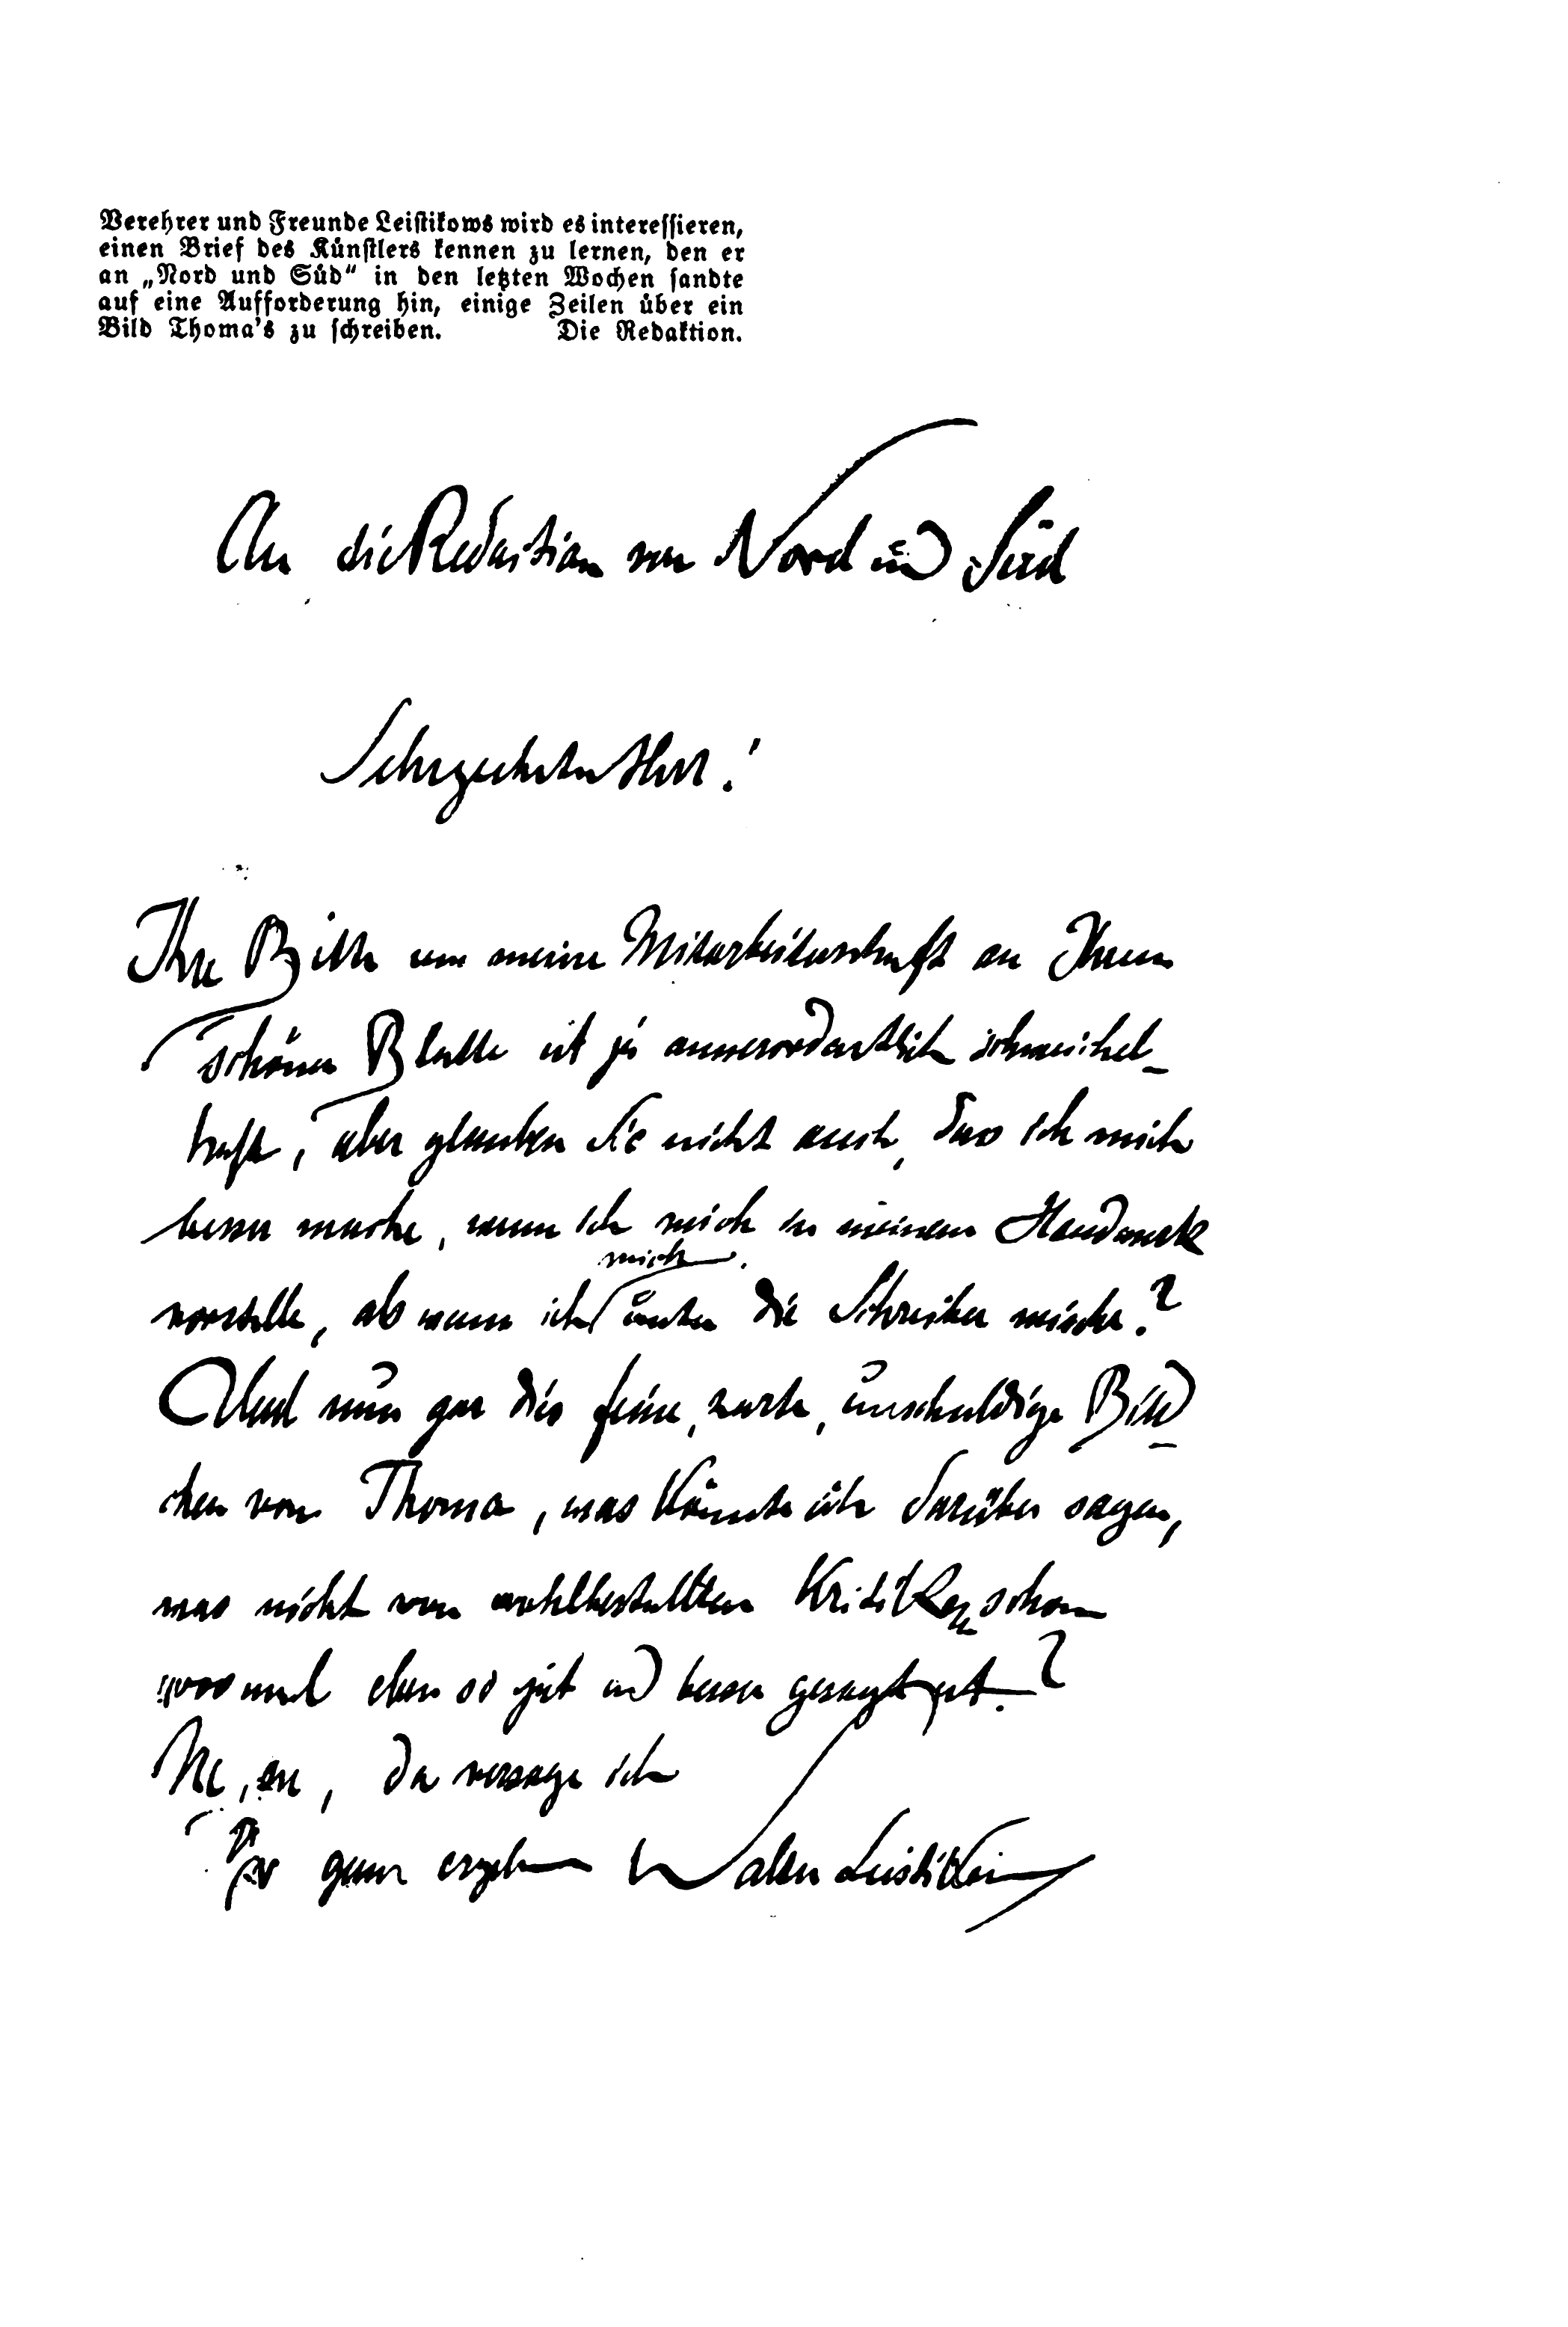 Verehrer und Freunde Leistikows wird es interessieren,
einen Brief des Künstlers kennen zu lernen, den er
an „Nord und Süd“ in den letzten Wochen sandte
auf eine Aufforderung hin, einige Zeilen über ein
Bild Thoma's zu schreiben. Die Redaktion.
An die Redaktion von Nord und Süd
Sehrgeehrter Herr!
Ihre Bitte um meine Mitarbeiterschaft an Ihrem
schönen Blatte ist ja ausserordentlich schmeichel-
haft, aber glauben Sie nicht auch, dass ich mich
besser mache, wenn ich mich in meinem Handwerk
mich
vorstelle, als wenn ich unter die Schreiber mische?
Und nun gar dies feine, zarte, unschuldige Bild-
chen von Thoma, was könnte ich darüber sagen,
was nicht von wohlbestallten Kritikern schon
eben so gut und besser gesagt ist?
Ne, ne, da versage ich
ganz ergeben Walter Leistikow